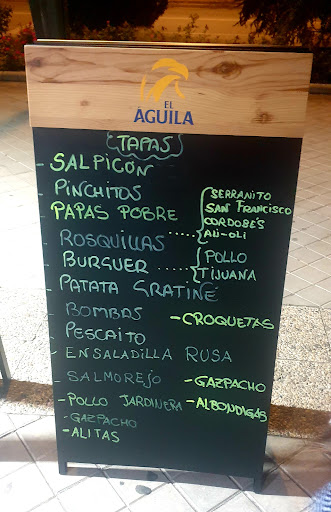 EL
ÁGUILA
TAPAS
- SALPICÓN
- PINCHITOS
- PAPAS POBRE
- ROSQUILLAS ..... { SERRANITO
SAN FRANCISCO
CORDOBÉS
ALI-OLI
- BURGUER ..... { POLLO
TIJUANA
- PATATA GRATINÉ
- BOMBAS - CROQUETAS
- PESCAITO
- ENSALADILLA RUSA
- SALMOREJO - GAZPACHO
- POLLO JARDINERA - ALBONDIGAS
- GAZPACHO
- ALITAS